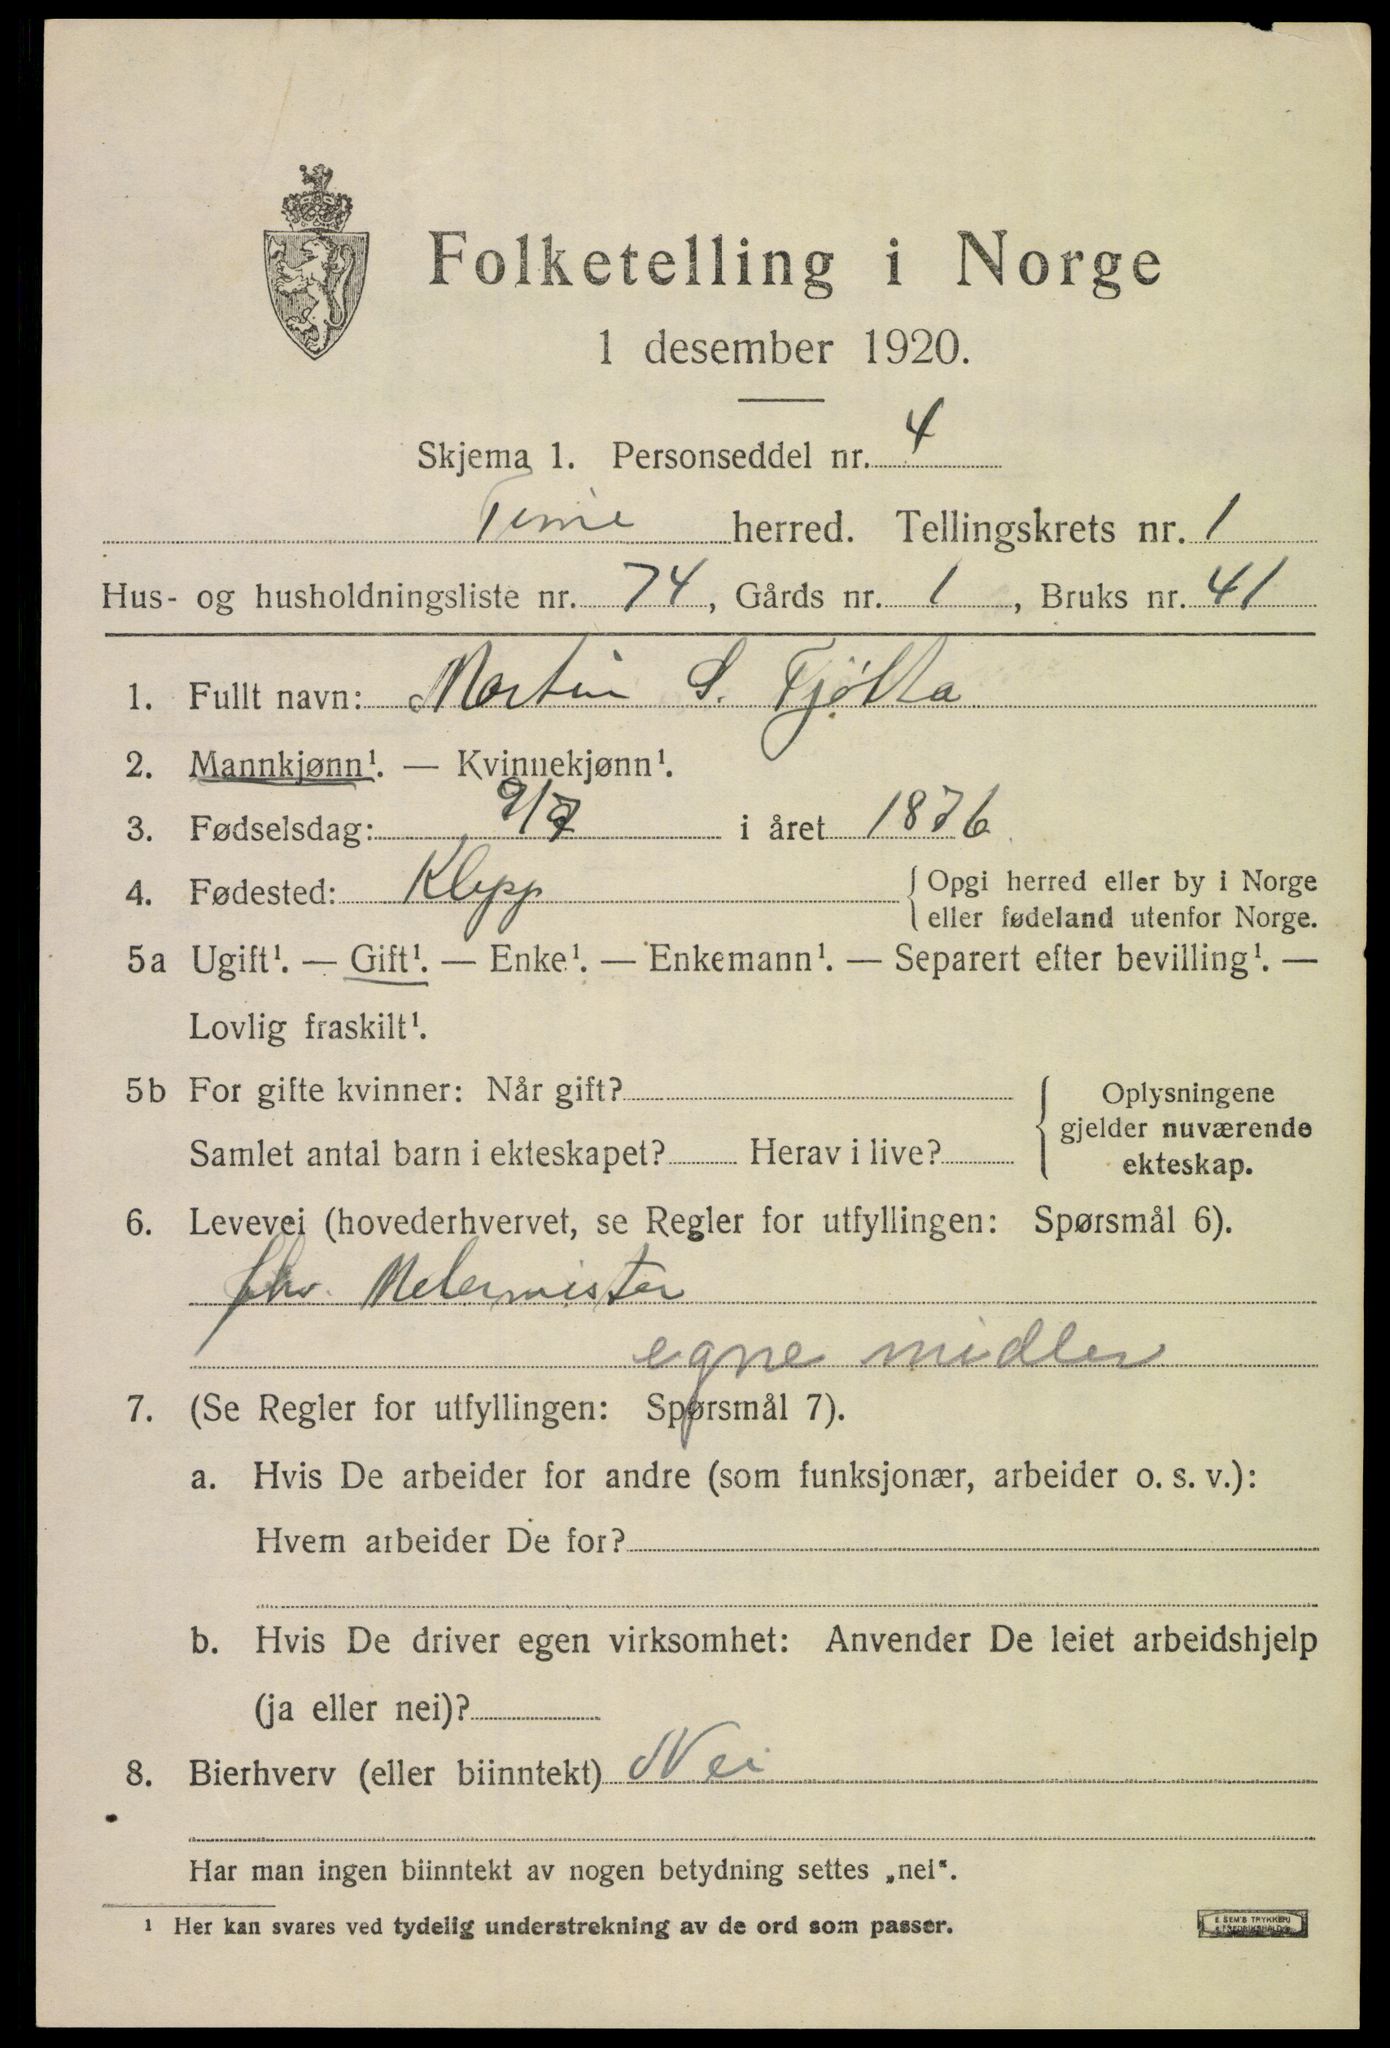 Folketelling i Norge
1 desember 1920.
Skjema 1. Personseddel nr. 4
Time herred. Tellingskrets nr. 1
Hus- og husholdningsliste nr. 74, Gårds nr. 1, Bruks nr. 41
1. Fullt navn: Martin S. Tjøtta
2. Mannkjønn¹. — Kvinnekjønn¹.
3. Fødselsdag: 9/7 i året 1876
4. Fødested: Klepp { Opgi herred eller by i Norge
eller fødeland utenfor Norge.
5a Ugift¹. — Gift¹. — Enke¹. — Enkemann¹. — Separert efter bevilling¹. —
Lovlig fraskilt¹.
5b For gifte kvinner: Når gift? { Oplysningene
gjelder nuværende
Samlet antal barn i ekteskapet? Herav i live? ekteskap.
6. Levevei (hovederhvervet, se Regler for utfyllingen: Spørsmål 6).
fhv.
egne midler
7. (Se Regler for utfyllingen: Spørsmål 7).
a. Hvis De arbeider for andre (som funksjonær, arbeider o. s. v.):
Hvem arbeider De for?
b. Hvis De driver egen virksomhet: Anvender De leiet arbeidshjelp
(ja eller nei)?
8. Bierhverv (eller biinntekt) Nei
Har man ingen biinntekt av nogen betydning settes „nei“.
1 Her kan svares ved tydelig understrekning av de ord som passer.
E SEM'S TRYKKERI
FREDRIKSHALD